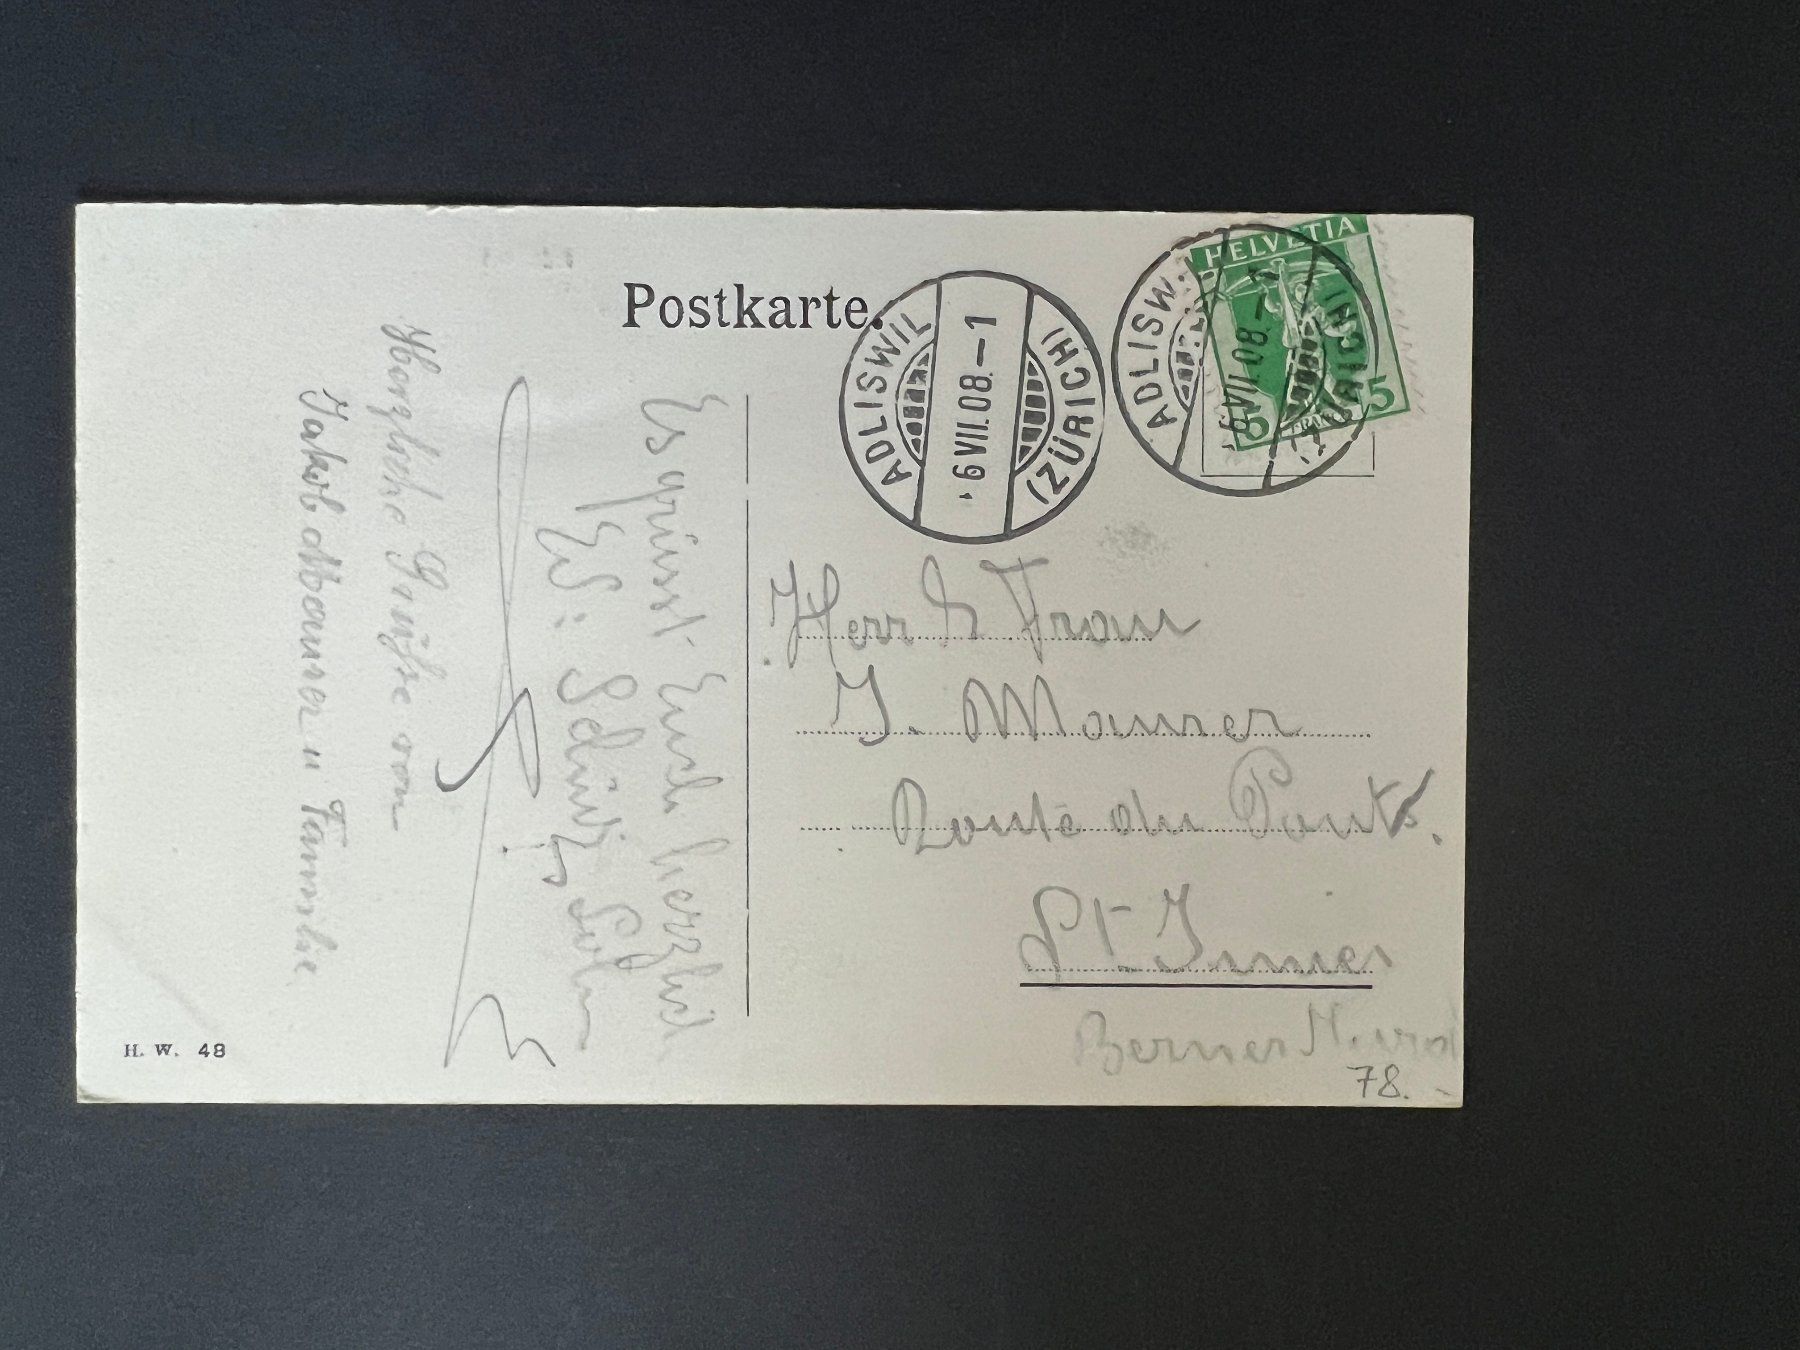 Postkarte.
ADLISWIL
6 VII. 08. – 1
(ZÜRICH)
ADLISW
6 VII. 08. – 1
(ZÜRICH)
HELVETIA
5 FRANCO 5
Herr & Frau
J. Maurer
Route du Pont
St. Imier
Berner
78.
Es grüsst Euch herzlich
Ed: Schütz Sohn
Herzliche Grüße von
Jakob Maurer u Familie
H. W. 48